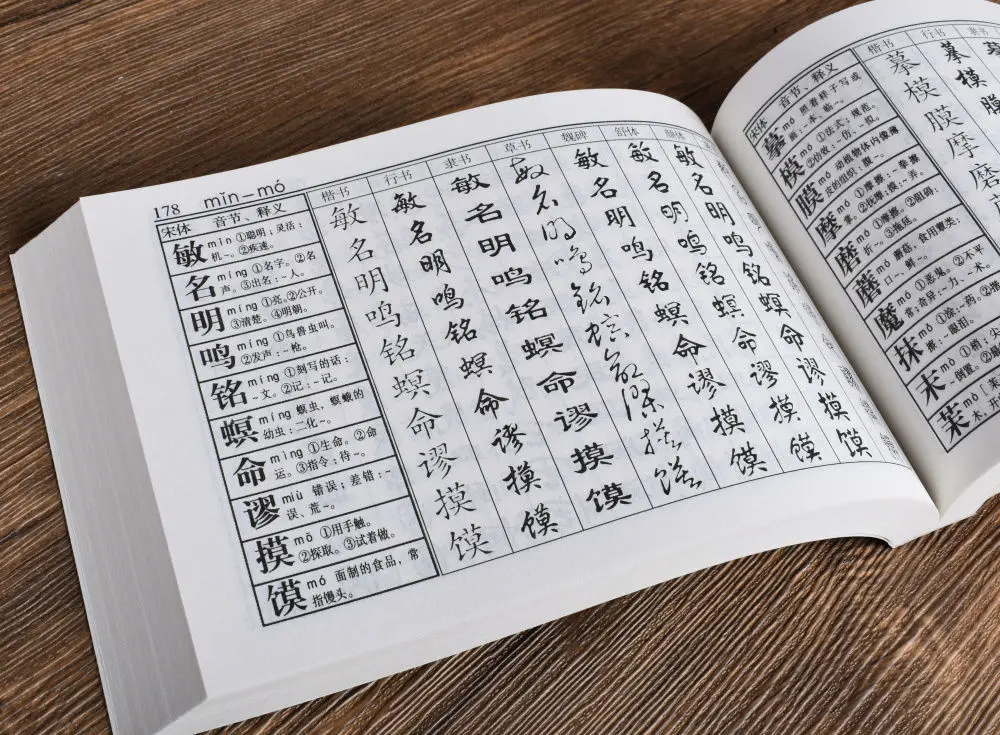 178 mǐn—mó
宋体 音节、释义 楷书 行书 隶书 草书 魏碑 舒体 颜体
敏 mǐn ①聪明;灵活:
机~。②疾速。
敏 敏 敏 敏 敏 敏 敏
名 míng ①名字。②名
声。③出名:~人。
名 名 名 名 名 名 名
明 míng ①亮。②公开。
③清楚。④明朝。
明 明 明 明 明 明 明
鸣 míng ①鸟兽虫叫。
②发声:~枪。
鸣 鸣 鸣 鸣 鸣 鸣 鸣
铭 míng ①刻写的话:
~文。②记:~记。
铭 铭 铭 铭 铭 铭 铭
螟 míng 螟虫,螟蛾的
幼虫:二化~。
螟 螟 螟 螟 螟 螟 螟
命 mìng ①生命。②命
运。③指令:待~。
命 命 命 命 命 命 命
谬 miù 错误;差错:~
误、荒~。
谬 谬 谬 谬 谬 谬 谬
摸 mō ①用手触。
②探取。③试着做。
摸 摸 摸 摸 摸 摸 摸
馍 mó 面制的食品,常
指馒头。
馍 馍 馍 馍 馍 馍 馍
宋体 音节、释义 楷书 行书 隶书
摹 mó 照着样子写或
画:~本、临~。
摹 摹
模 mó ①法式;规范。
②仿效:~仿、~拟。
模 模
膜 mó 动植物体内像薄
皮的组织:腹~。
膜
摩 mó
摩
磨 mó
磨
蘑 mó 蘑菇,食用蕈类:
口~、鲜~。
魔 mó ①恶鬼。②不平
常;奇异:~力、~术。
抹 mǒ
末 mò
茉 mò